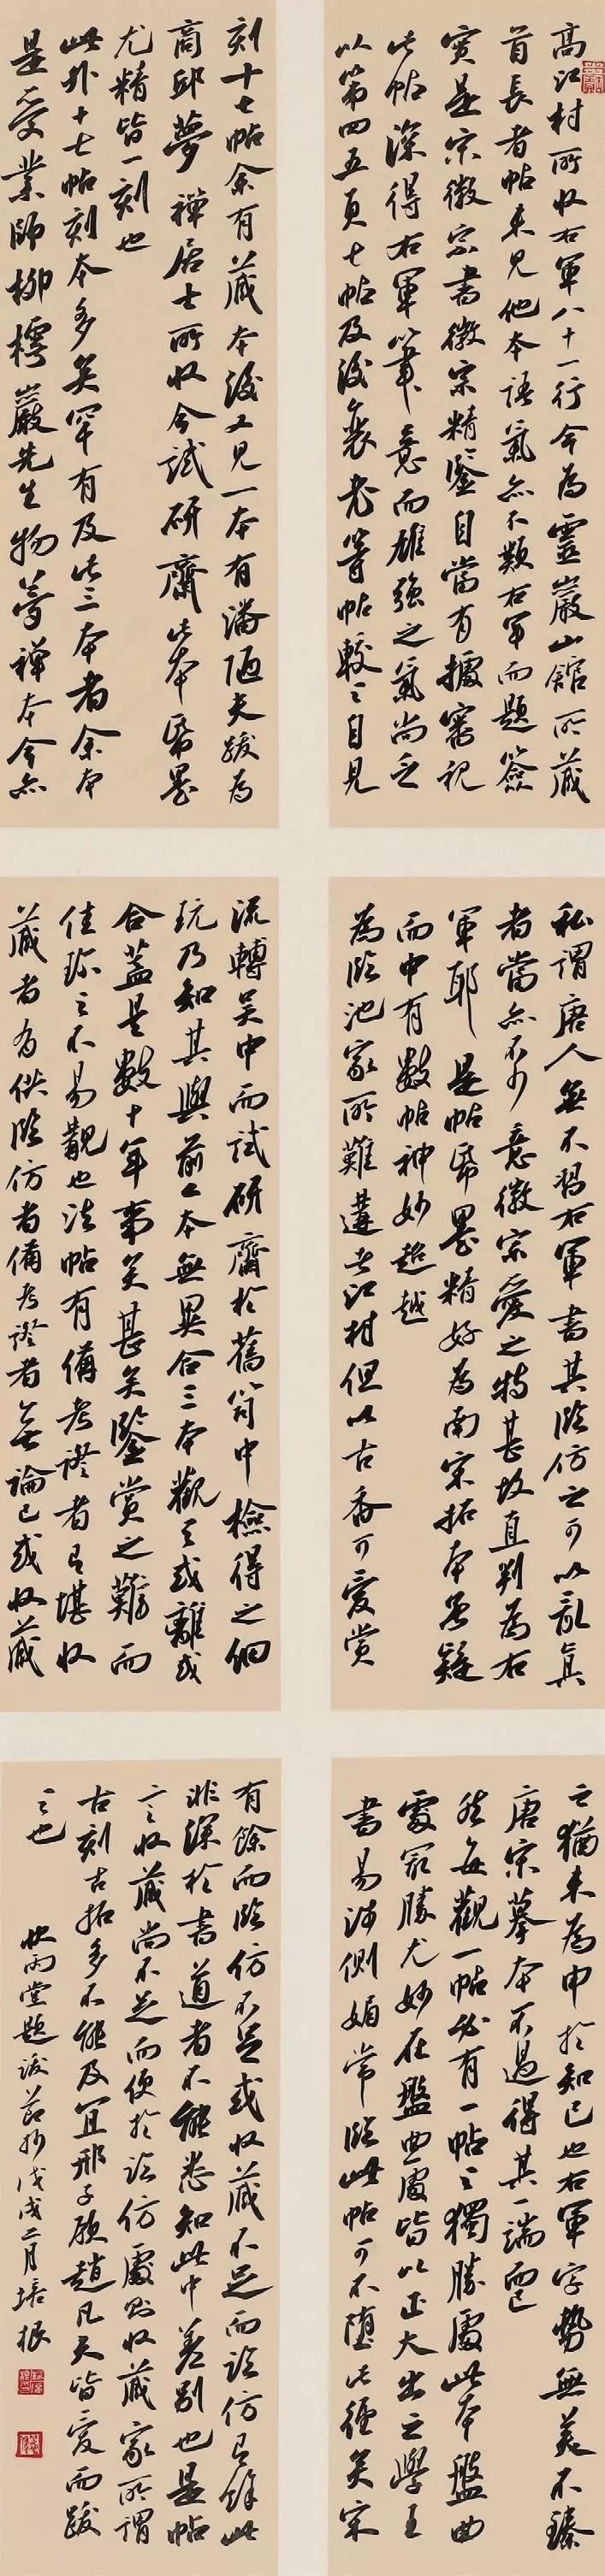 高江村所收右軍八十一行今為靈巖山館所藏
首長者帖未見他本語氣亦不類右軍而題簽
實是宋徽宗書徽宗精鑒自當有據審視
此帖深得右軍筆意而雄強之氣尚乏
以第四五頁七帖及後袁老等帖較之自見
私謂唐人無不習右軍書其臨仿之可以亂真
者當亦不少意徽宗愛之特甚故直判為右
軍耶 是帖紙墨精好為南宋拓本無疑
而中有數帖神妙超越
為臨池家所難遘者江村但以古香可愛賞
之猶未為申於知己也右軍字勢無美不臻
唐宋摹本不過得其一端而已
然每觀一帖必有一帖之獨勝處此本盤曲
處最勝尤妙在盤曲處皆以正大出之學王
書易涉側媚常臨此帖可不墮此徑矣宋
刻十七帖余有藏本後又見一本有潘陋夫跋為
商邱夢禪居士所收今試研齋此本紙墨
尤精皆一刻也
此外十七帖刻本多矣罕有及此三本者余本
是受業師柳樗巖先生物夢禪本今亦
流轉吳中而試研齋於舊笥中檢得之細
玩乃知其與前二本無異合三本觀之或離或
合蓋是數十年事矣甚矣鑒賞之難而
佳珍之不易覯也法帖有備考證者有堪收
藏者有供臨仿者備考證者無論已或收藏
有餘而臨仿不足或收藏不足而臨仿有餘此
非深於書道者不能悉知此中差別也是帖
言收藏尚不足而便於臨仿處則收藏家所謂
古刻古拓多不能及宜邢子愿趙凡夫皆愛而跋
之也
快雨堂題跋節抄戊戌二月培根